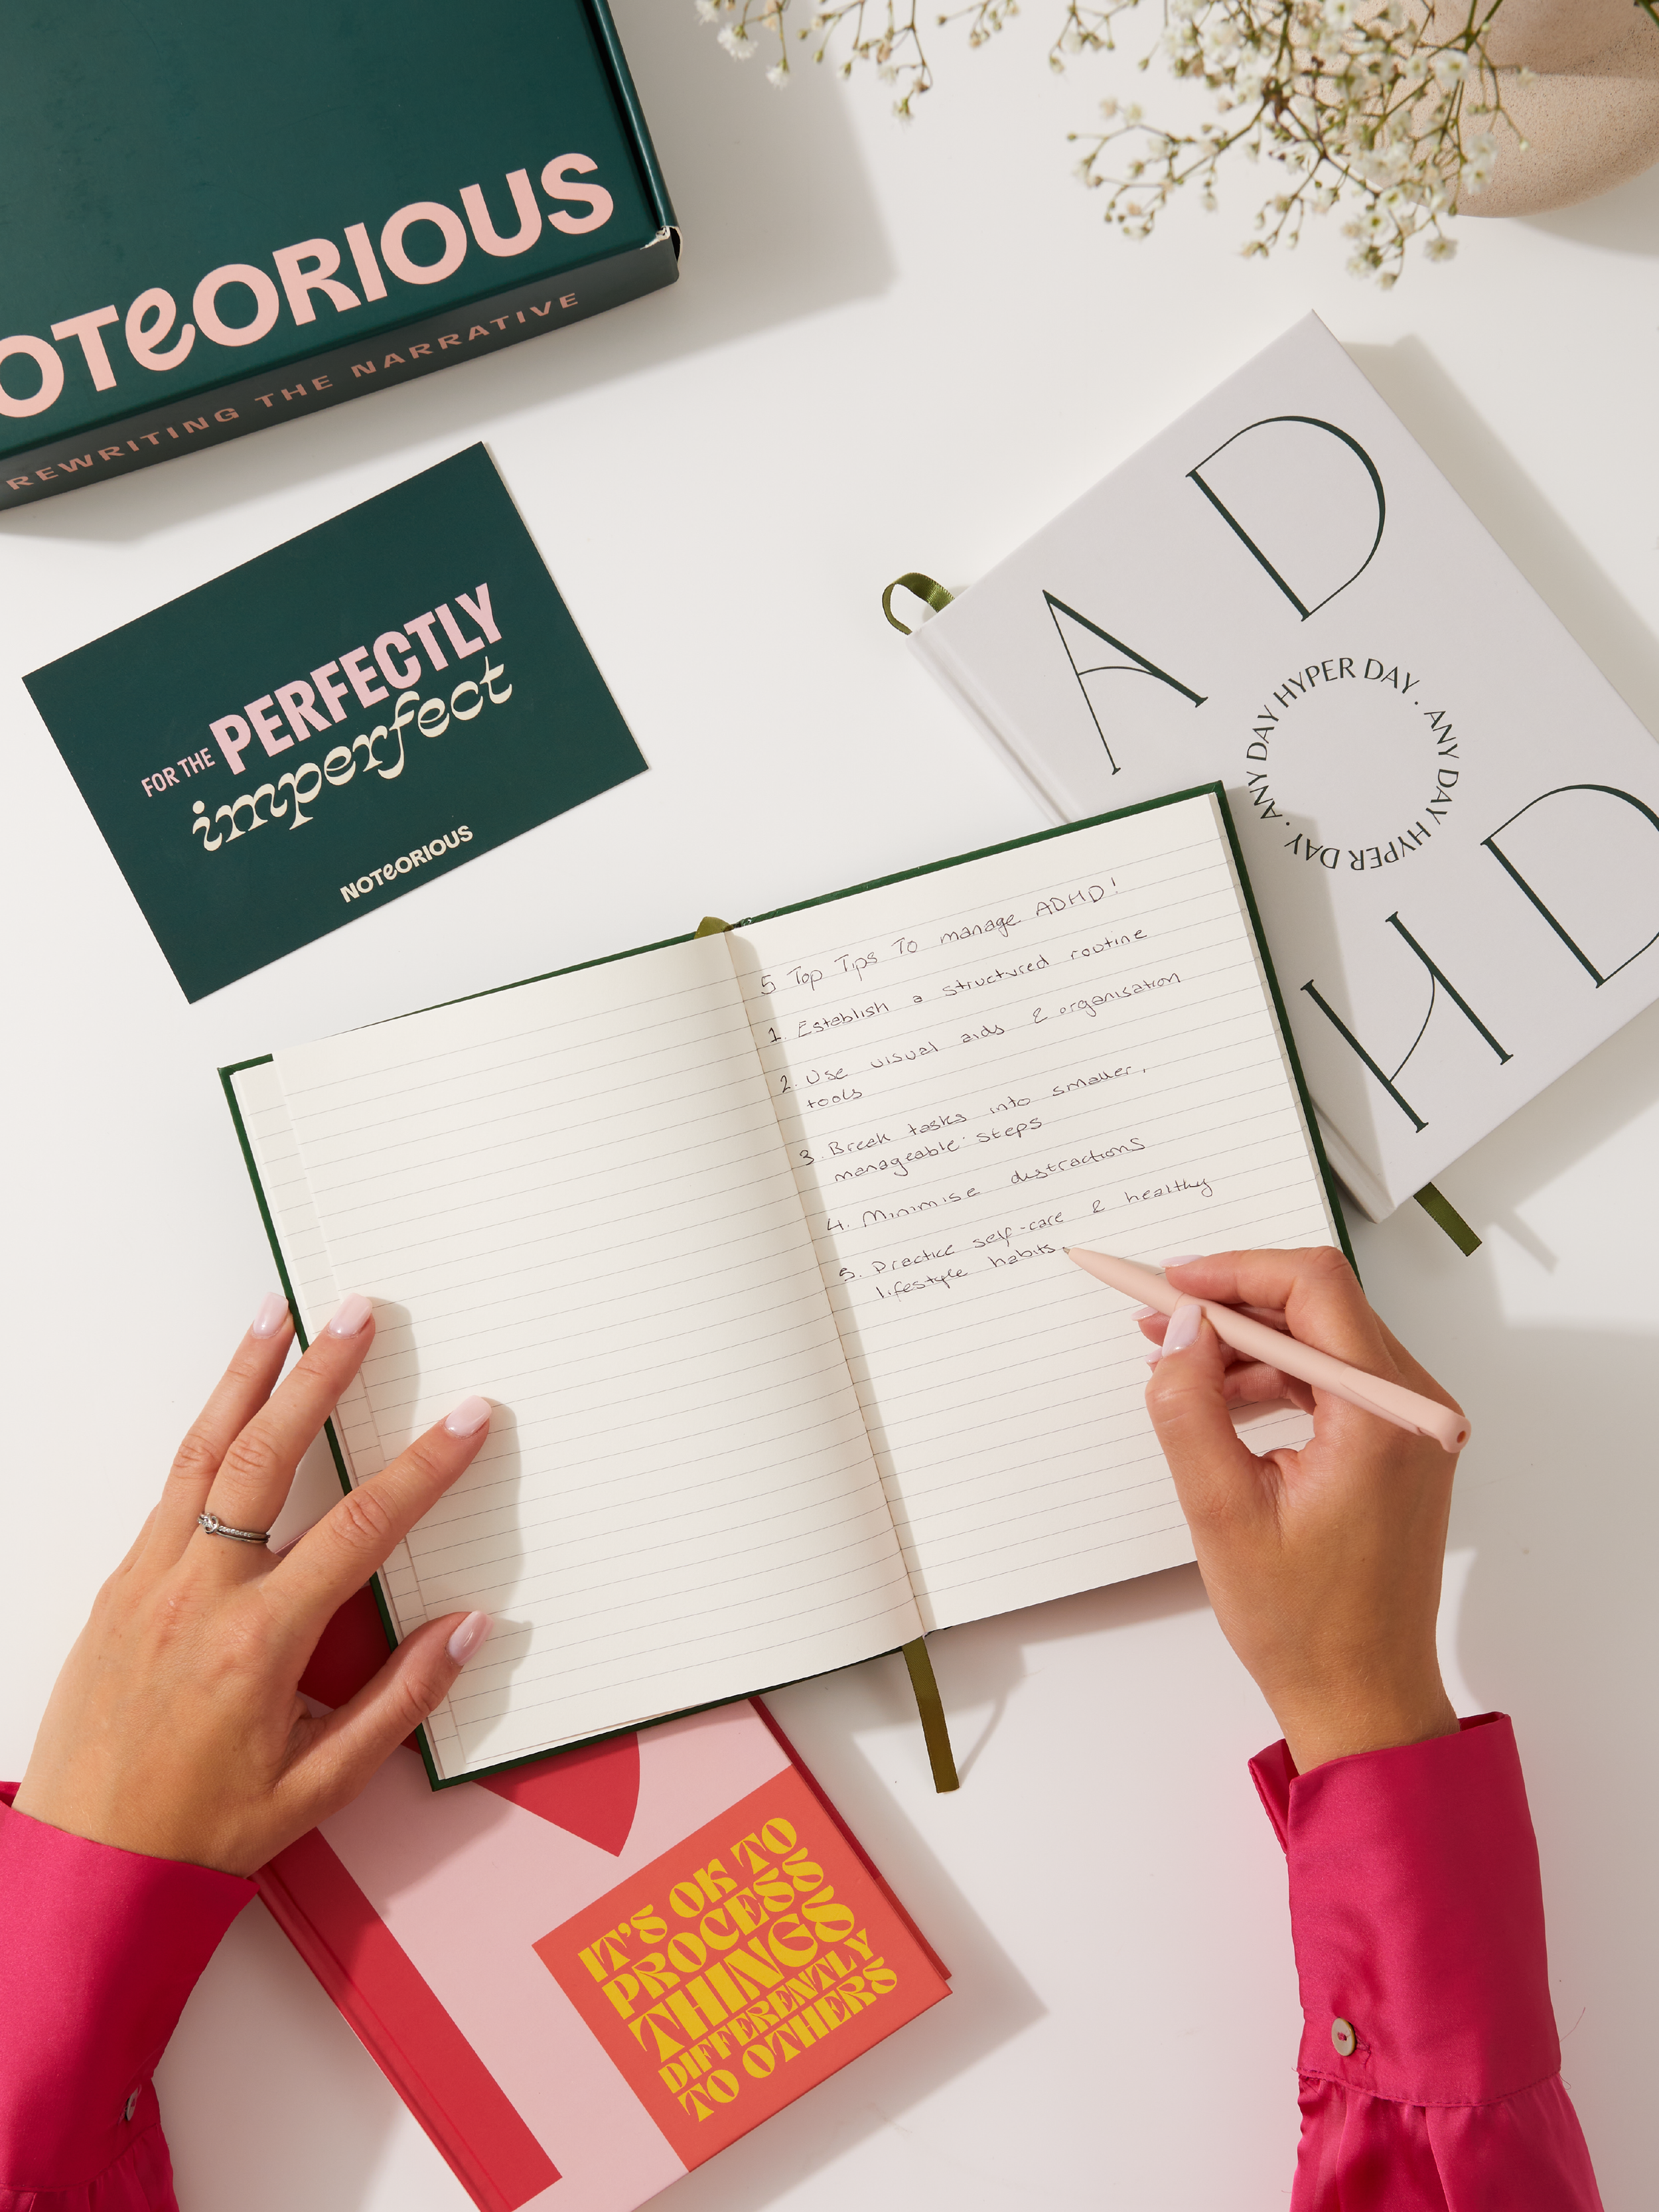 OTEORIOUS
REWRITING THE NARRATIVE
FOR THE PERFECTLY
imperfect
NOTEORIOUS
A D
ANY DAY HYPER DAY . ANY DAY HYPER DAY .
H D
5 Top Tips To manage ADHD!
1. Establish a structured routine
2. Use visual aids & organisation
tools
3. Break tasks into smaller,
manageable steps
4. Minimise distractions
5. Practice self-care & healthy
lifestyle habits.
IT'S OK TO
PROCESS
THINGS
DIFFERENTLY
TO OTHERS